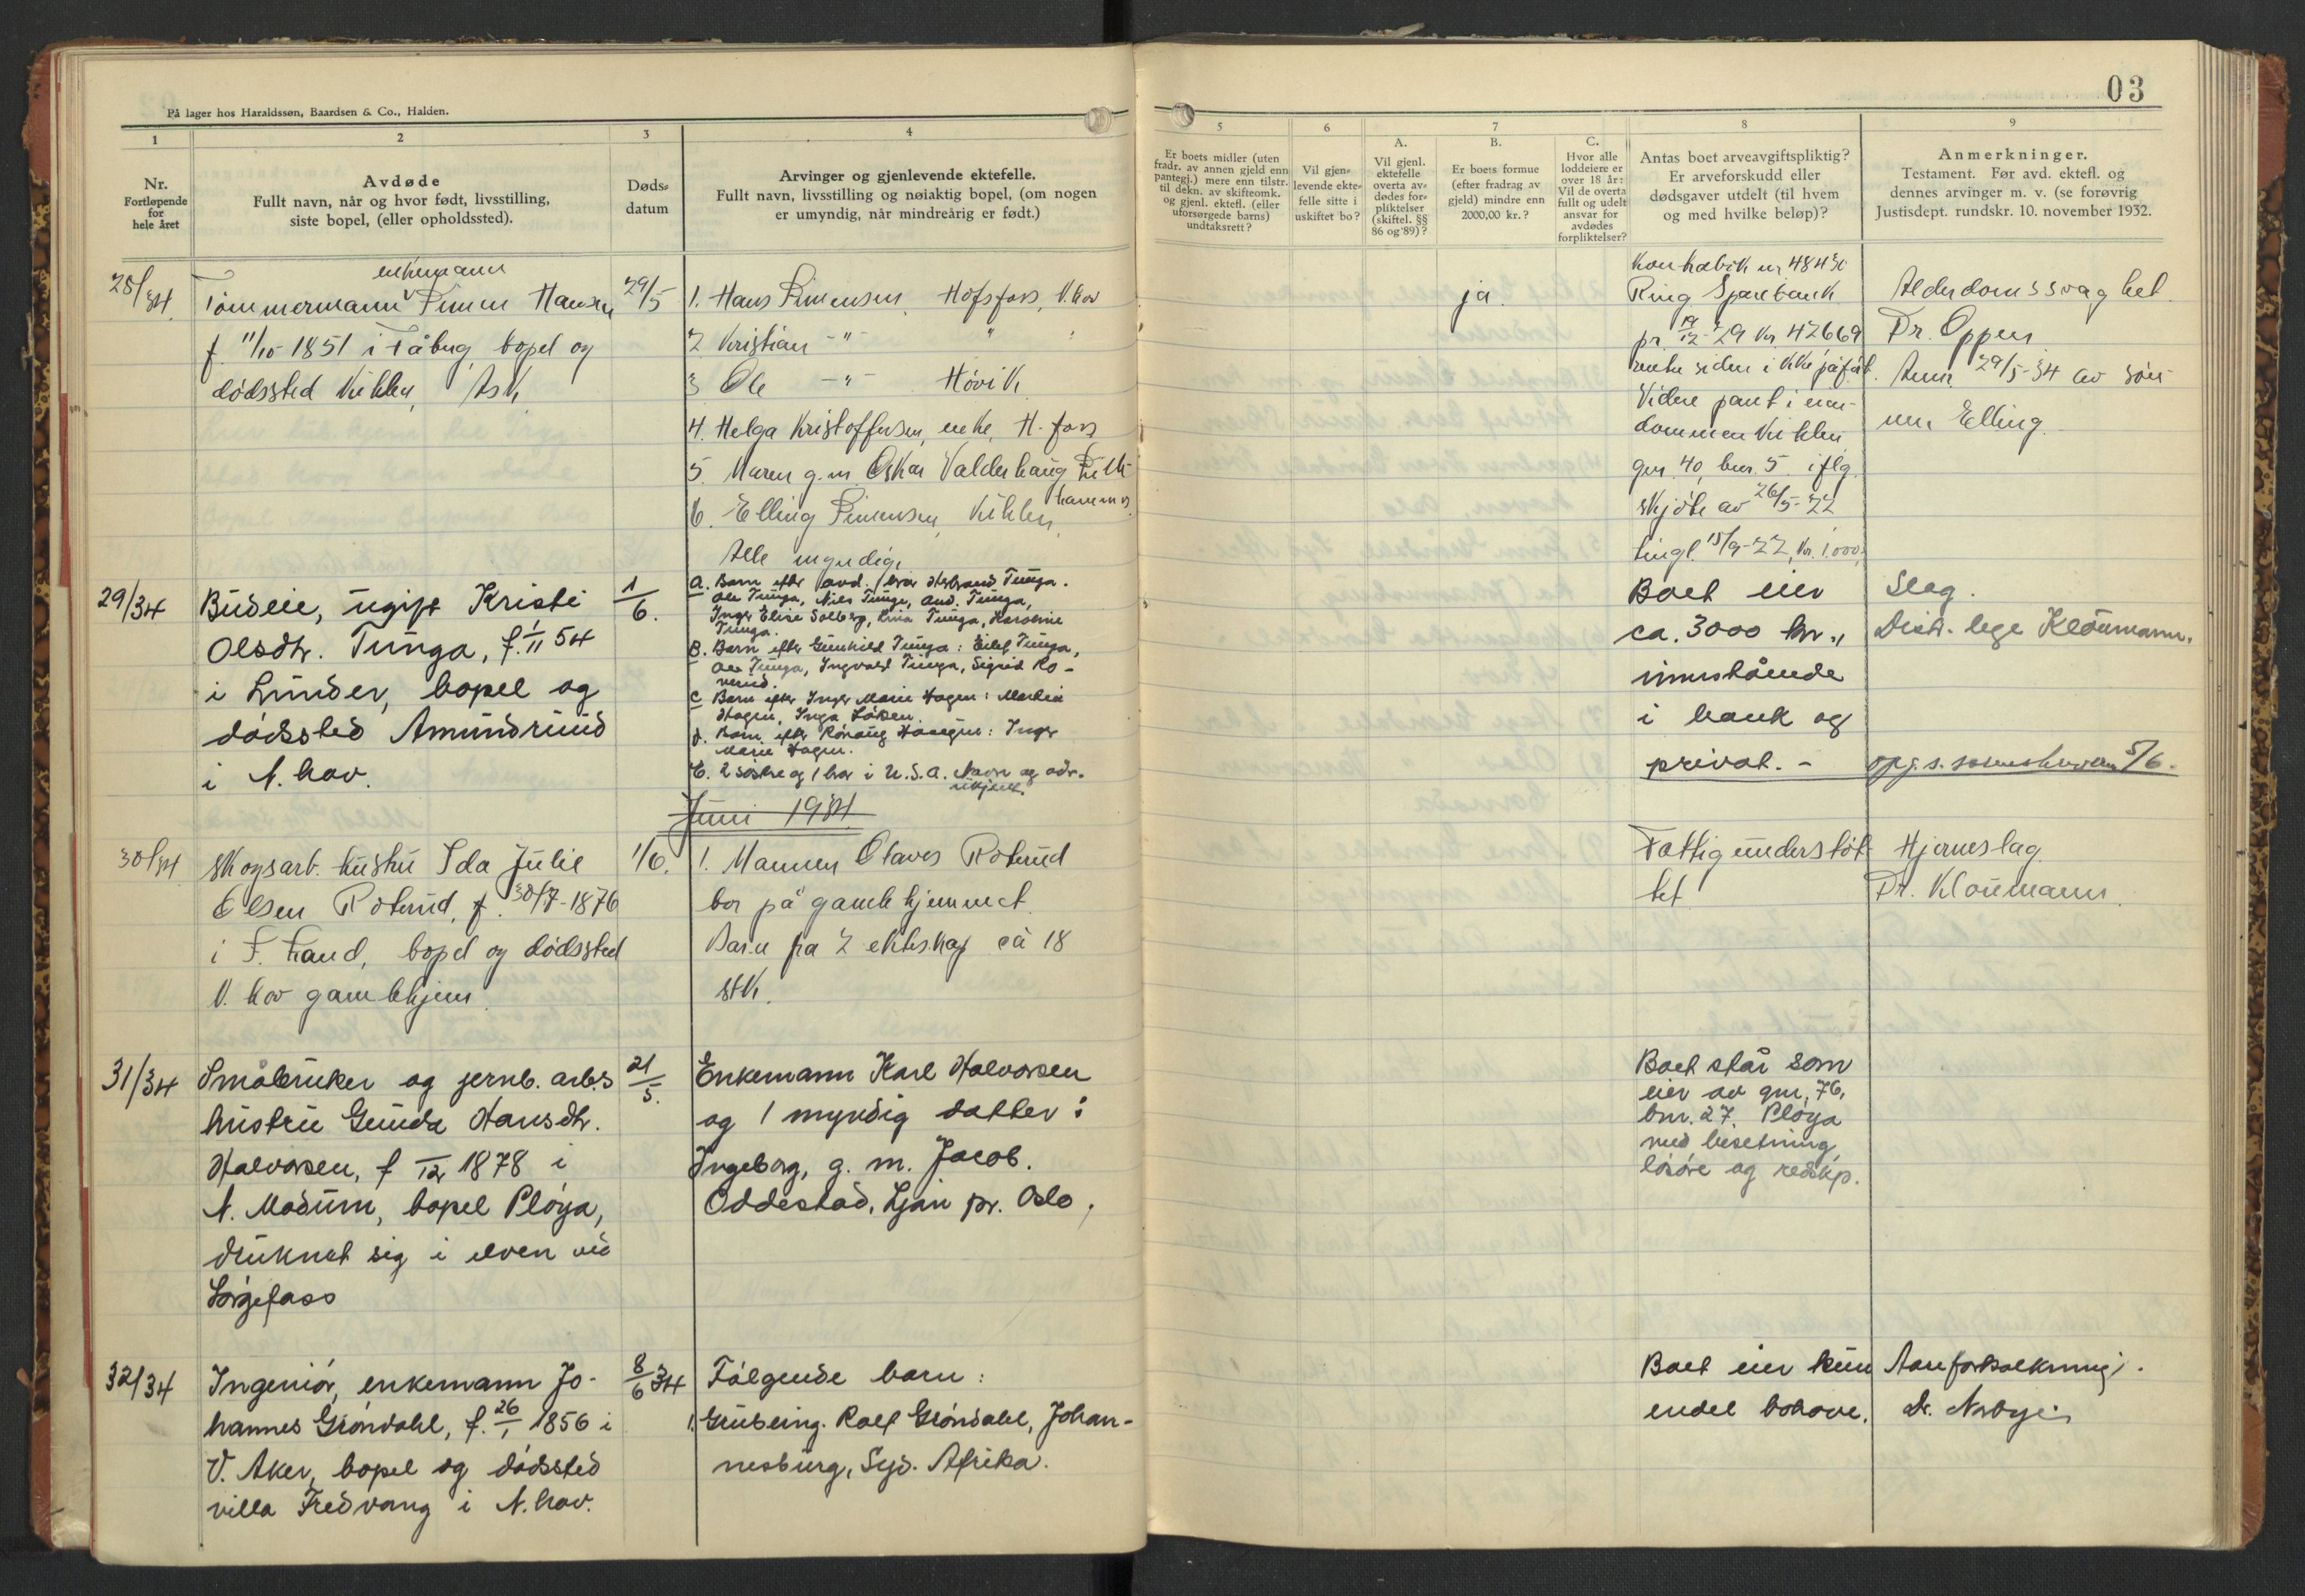 03
På lager hos Haraldssøn, Baardsen & Co., Halden.
1
Nr.
Fortløpende
for
hele året
2
Avdøde
Fullt navn, når og hvor født, livsstilling,
siste bopel, (eller opholdssted).
3
Døds-
datum
4
Arvinger og gjenlevende ektefelle.
Fullt navn, livsstilling og nøiaktig bopel, (om nogen
er umyndig, når mindreårig er født.)
5
Er boets midler (uten
fradr. av annen gjeld enn
pantegj.) mere enn tilstr.
til dekn. av skifteomk.
og gjenl. ektefl. (eller
uforsørgede barns)
undtaksrett?
6
Vil gjen-
levende ekte-
felle sitte i
uskiftet bo?
7
A.
Vil gjenl.
ektefelle
overta av-
dødes for-
pliktelser
(skiftel. §§
86 og 89)?
B.
Er boets formue
(efter fradrag av
gjeld) mindre enn
2000,00 kr.?
C.
Hvor alle
loddeiere er
over 18 år:
Vil de overta
fullt og udelt
ansvar for
avdødes
forpliktelser?
8
Antas boet arveavgiftspliktig?
Er arveforskudd eller
dødsgaver utdelt (til hvem
og med hvilke beløp)?
9
Anmerkninger.
Testament. Før avd. ektefl. og
dennes arvinger m. v. (se forøvrig
Justisdept. rundskr. 10. november 1932.
28/34.
enkemann
Tømmermann Simen Hansen
f. 11/10-1851 i Fåberg, bopel og
dødssted Viklen, Ask
29/5
1. Hans Simensen, Hofsfoss, N.hov
2 Kristian -"- "
3 Ole -"- Høvik
4. Helga Kristoffersen, enke, H-foss
5. Maren g.m. Oskar Valderhaug
6. Elling Simensen, Viklen
Alle myndige
ja.
Kontrabok nr 48430
Ring. Sparebank
pr. 19/12-29 kr. 42669
rente siden ikke påført.
Videre pant i eien-
dommen Viklen
gnr. 40, bnr. 5. iflg.
skjøte av 26/5-22
tingl. 15/9-22, kr. 1.000,
Alderdomssvaghet
Dr. Oppen
Anm. 29/5-34 av søn-
nen Elling.
29/34
Budeie, ugift Kristi
Olsdtr. Tunga, f. 1/11 54
i Lunder, bopel og
dødssted Amundrud
i N. hov.
1/6.
a. Barn efter avd. bror Herbrand Tunga.
Ole Tunga, Nils Tunga, And. Tunga,
Inger Elise Solberg, Lina Tunga, Karoline
Tunga.
B. Barn efter Gunhild Tunga: Eilef Tunga,
Ole Tunga, Ingvald Tunga, Sigrid Ro-
verud.
C Barn efter Inger Marie Hagen: Martin
Hagen, Inga Løken.
d. Barn efter Rønaug Haugen: Inger
Marie Hagen.
E. 2 søstre og 1 bror i U.S.A. Navn og adr.
ukjent.
Boet eier
ca. 3000 kr.,
innestående
i bank og
privat. -
Slag.
Distr. lege Kloumann.
5/6.
Juni 1934
30/34
Skogsarb. hustru Ida Julie
Olsen Roterud, f. 30/7-1876
i F. hand, bopel og dødssted
N. hov gamlehjem
1/6.
1. Mannen Olaves Roterud
bor på gamlehjemmet
Barn fra 2 ekteskap ca 18
stk.
Fattigunderstøt-
tet
Hjerneslag
Dr. Kloumann.
31/34
Småbruker og jernb. arb.s
hustru Gunda Hansdtr.
Halvorsen, f /12 1878 i
N. Modum, bopel Pløya,
druknet sig i elven ved
21/5.
Enkemann Karl Halvorsen
og 1 myndig datter:
Ingeborg, g. m. Jacob.
Oddestad, Ljan pr. Oslo.
Boet står som
eier av gnr. 76,
bnr. 27. Pløya
med besetning,
løsøre og redskp.
32/34
Ingeniør, enkemann Jo-
hannes Grøndahl, f. 26/1 1856 i
V. Aker, bopel og dødssted
villa Fredvang i N. hov.
8/6 34
Følgende barn:
1. Grubeing. Rolf Grøndahl, Johan-
nesburg, Syd. Afrika.
Boet eier kun
endel bohave.
Aareforkalkning.
Dr.